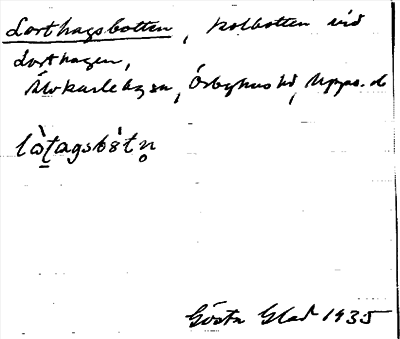 Lorthagsbotten, kolbotten vid
Lorthagen,
Älvkarleby sn, Örbyhus hd, Upps. l
lò̱ṯagsbòtn̥
Gösta Glad 1935